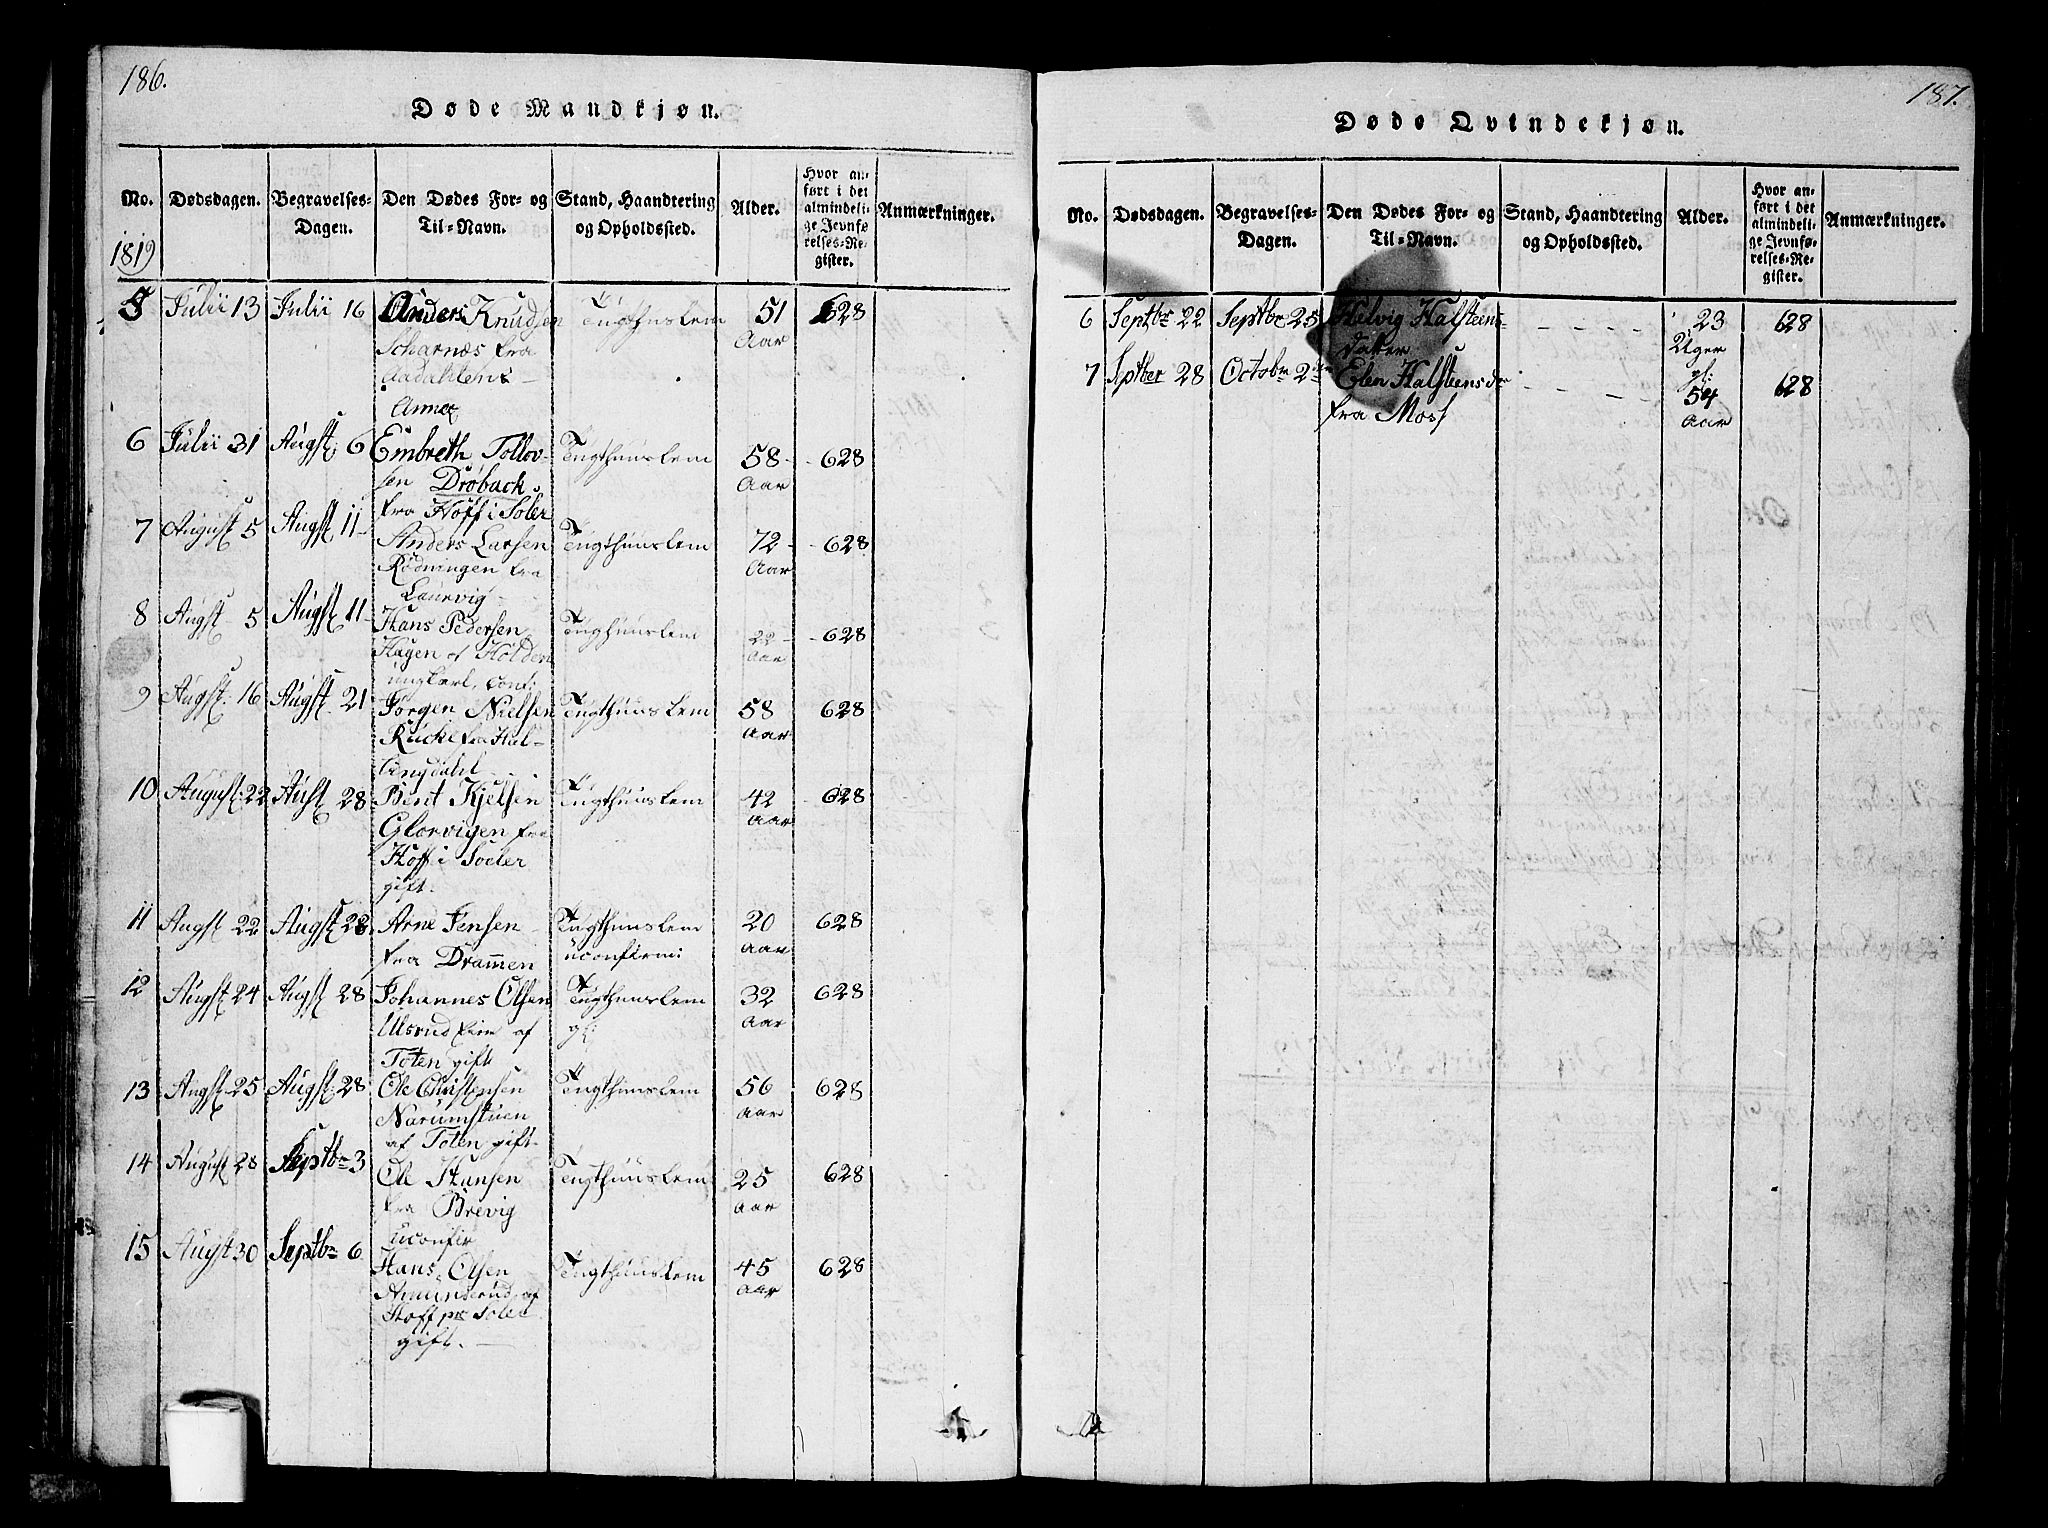 186.
Døde Mandkjøn.
No. Dødsdagen. Begravelses-Dagen. Den Dødes For- og Til-Navn. Stand, Haandtering og Opholdssted. Alder. Hvor anført i det almindelige Jevnførelses-Register. Anmærkninger.
1819
5 Julii 13 Julii 16 Anders Knudsen Tugthuslem 51 628
Scharnæs fra Aar
Aadahlens
Annex
6 Julii 31 Augst: 6 Embreth Tollov- Tugthuuslem 58 - 628
sen Drøbach Aar
fra Hoff i Soler
7 August 5 Augst 11 Anders Larsen Tugthuuslem 72 - 628
Rødningen fra Aar
Laurvig
8 Augst 5 Augst 11 Hans Pedersen Tugthuuslem 22 - 628
Hagen af Holden Aar
ungkarl, conf:
9 Augst: 16 Augst. 21 Jørgen Nielsen Tugthuuslem 58 628
Rucke fra Hal- Aar
lingdahl
10 August: 22 Aust 28 Bent Kjelsen Tugthuuslem 42 628
Glorvigen fra Aar
Hoff i Soeler
gift.
11 Augst 22 Augst 28 Arne Jensen Tugthuuslem 20 628
fra Drammen uconfirm: Aar
12 Augst 24 Augst 28 Johannes Olsen Tugthuuslem 32 628
Ulsrud eie af gf: Aar
Toten gift
13 Augst 25 Augst: 28 Ole Christensen Tugthuuslem 56 628
Narumstuen Aar
af Toten gift
14 August 28 Septbr 3 Ole Hansen Tugthuuslem 25 628
fra Brevig Aar
uconfir
15 Augst 30 Septbr 6 Hans Olsen Tugthuuslem 45 628
Amunderud af Aar
Hoff pr Soler
gift.
187.
Døde Qvindekjøn.
No. Dødsdagen. Begravelses-Dagen. Den Dødes For- og Til-Navn. Stand, Haandtering og Opholdssted. Alder. Hvor anført i det almindelige Jevnførelses-Register. Anmærkninger.
6 Septbr 22 Septbr 25 Helvig Halsteens- - - - - 23 628
datter Uger
7 Septber 28 Octobr 2 Elen Halsteensdr - - - - gf: 54 628
fra Moss Aar